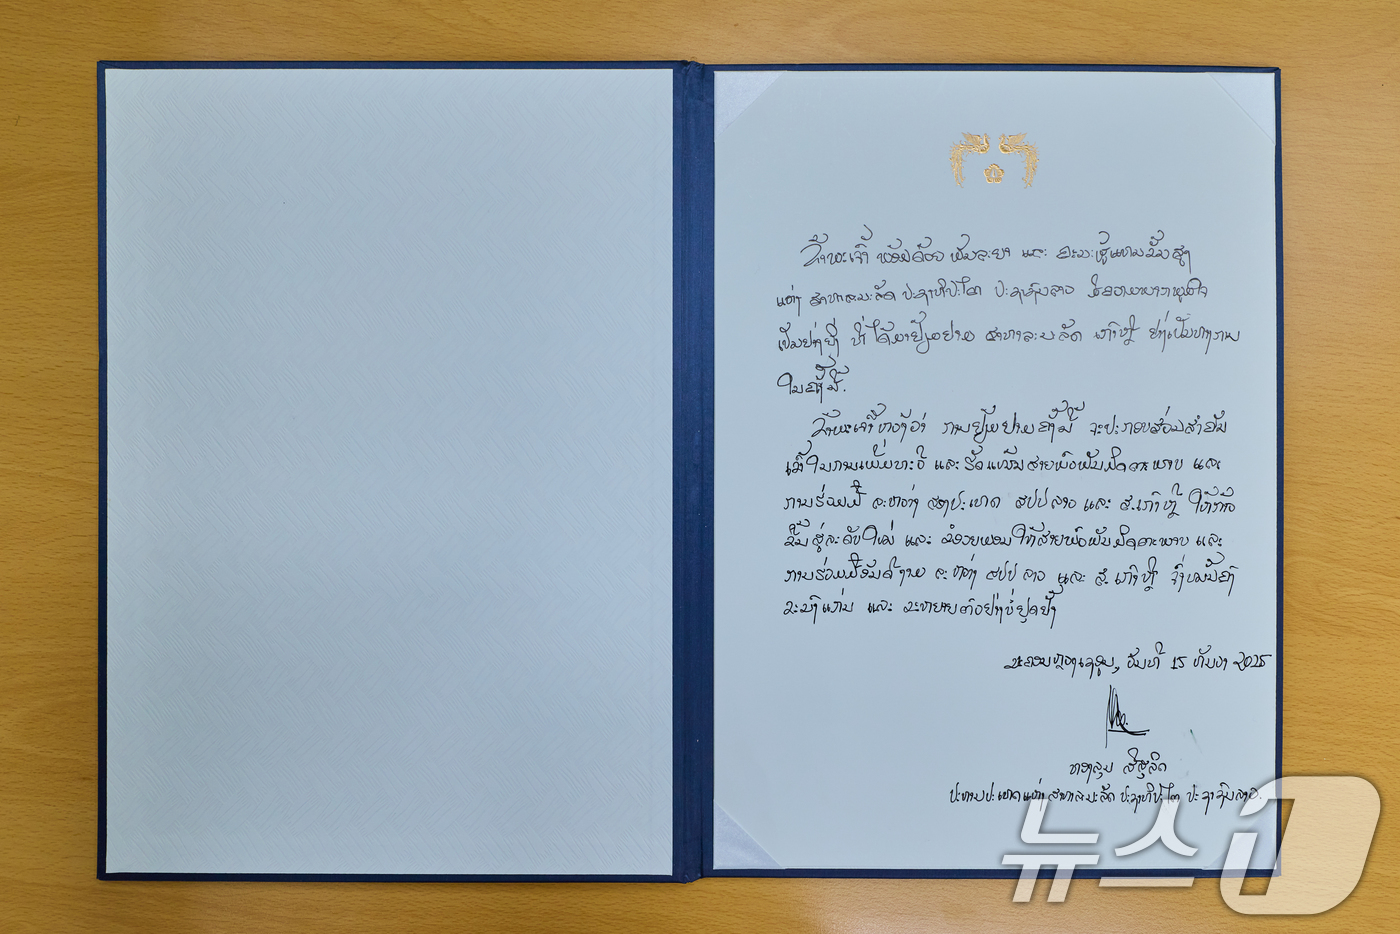 ຂ້າພະເຈົ້າ ພ້ອມດ້ວຍ ພັນລະຍາ ແລະ ຄະນະຜູ້ແທນຂັ້ນສູງ
ແຫ່ງ ສາທາລະນະລັດ ປະຊາທິປະໄຕ ປະຊາຊົນລາວ ມີຄວາມພາກພູມໃຈ
ເປັນຢ່າງຍິ່ງ ທີ່ໄດ້ມາຢ້ຽມຢາມ ສາທາລະນະລັດ ເກົາຫຼີ ຢ່າງເປັນທາງການ
ໃນຄັ້ງນີ້.
ຂ້າພະເຈົ້າຫວັງວ່າ ການຢ້ຽມຢາມຄັ້ງນີ້ ຈະປະກອບສ່ວນສຳຄັນ
ເຂົ້າໃນການເພີ່ມທະວີ ແລະ ຮັດແໜ້ນສາຍພົວພັນມິດຕະພາບ ແລະ
ການຮ່ວມມື ລະຫວ່າງ ສອງປະເທດ ສປປ ລາວ ແລະ ສ.ເກົາຫຼີ ໃຫ້ກ້າວ
ຂຶ້ນສູ່ລະດັບໃໝ່ ແລະ ຂໍອວຍພອນໃຫ້ສາຍພົວພັນມິດຕະພາບ ແລະ
ການຮ່ວມມືອັນດີງາມ ລະຫວ່າງ ສປປ ລາວ ແລະ ສ.ເກົາຫຼີ ຈົ່ງໝັ້ນຄົງ
ຂະໜົງແກ່ນ ແລະ ຂະຫຍາຍຕົວຢ່າງບໍ່ຢຸດຢັ້ງ
ນະຄອນຫຼວງເຊອູນ, ວັນທີ 15 ທັນວາ 2025
ທອງລຸນ ສີສຸລິດ
ປະທານປະເທດແຫ່ງ ສາທາລະນະລັດ ປະຊາທິປະໄຕ ປະຊາຊົນລາວ.
뉴스1